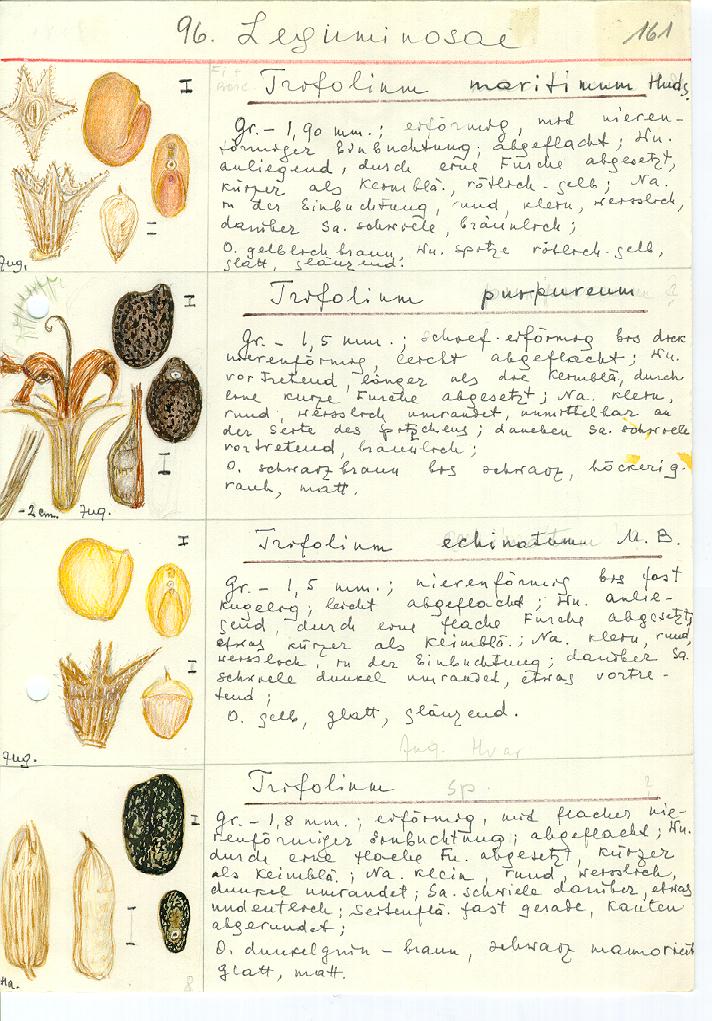 96. Leguminosae
161
Trifolium maritimum Huds.
Gr. - 1,90 mm.; eiförmig, mit nieren-
förmiger Einbuchtung; abgeflacht; Wu.
anliegend, durch eine Furche abgesetzt,
kürzer als Keimblä., rötlich-gelb; Na.
in der Einbuchtung, rund, klein, weisslich,
darüber Sa. schwiele, bräunlich;
O. gelblich braun, Wu. spitze rötlich-gelb,
glatt, glänzend.
Jug.
Trifolium purpureum ?
Gr. - 1,5 mm.; schief-eiförmig bis dick
nierenförmig, leicht abgeflacht; Wu.
vortretend, länger als die Keimblä., durch
eine kurze Furche abgesetzt; Na. klein,
rund, weisslich umrandet, unmittelbar an
der Seite des Spitzchens; daneben Sa. schwiele
vortretend, bräunlich;
O. schwarzbraun bis schwarz, höckerig-
rauh, matt.
-2 cm. Jug.
Trifolium echinatum M. B.
Gr. - 1,5 mm.; nierenförmig bis fast
kugelig; leicht abgeflacht; Wu. anlie-
gend, durch eine flache Furche abgesetzt,
etwas kürzer als Keimblä.; Na. klein, rund,
weisslich, in der Einbuchtung; darüber Sa.
schwiele dunkel umrandet, etwas vortre-
tend;
O. gelb, glatt, glänzend.
Jug. Hvar
Jug.
Trifolium sp. ?
Gr. - 1,8 mm.; eiförmig, mit flacher nie-
renförmiger Einbuchtung; abgeflacht; Wu.
durch eine flache Fu. abgesetzt, kürzer
als Keimblä.; Na. klein, rund, weisslich,
dunkel umrandet; Sa. schwiele darüber, etwas
undeutlich; Seitenflä. fast gerade, Kanten
abgerundet;
O. dunkelgrün - braun, schwarz mamoriert
glatt, matt.
Ha.
8